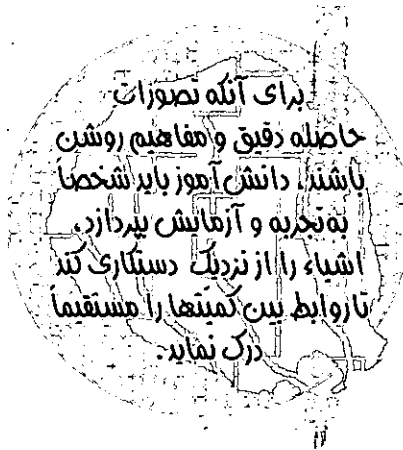 برای آنکه تصورات
حاصله دقیق و مفاهیم روشن
باشند، دانش‌آموز باید شخصاً
به تجربه و آزمایش بپردازد،
اشیاء را از نزدیک دستکاری کند
تا روابط بین کمیتها را مستقیماً
درک نماید.